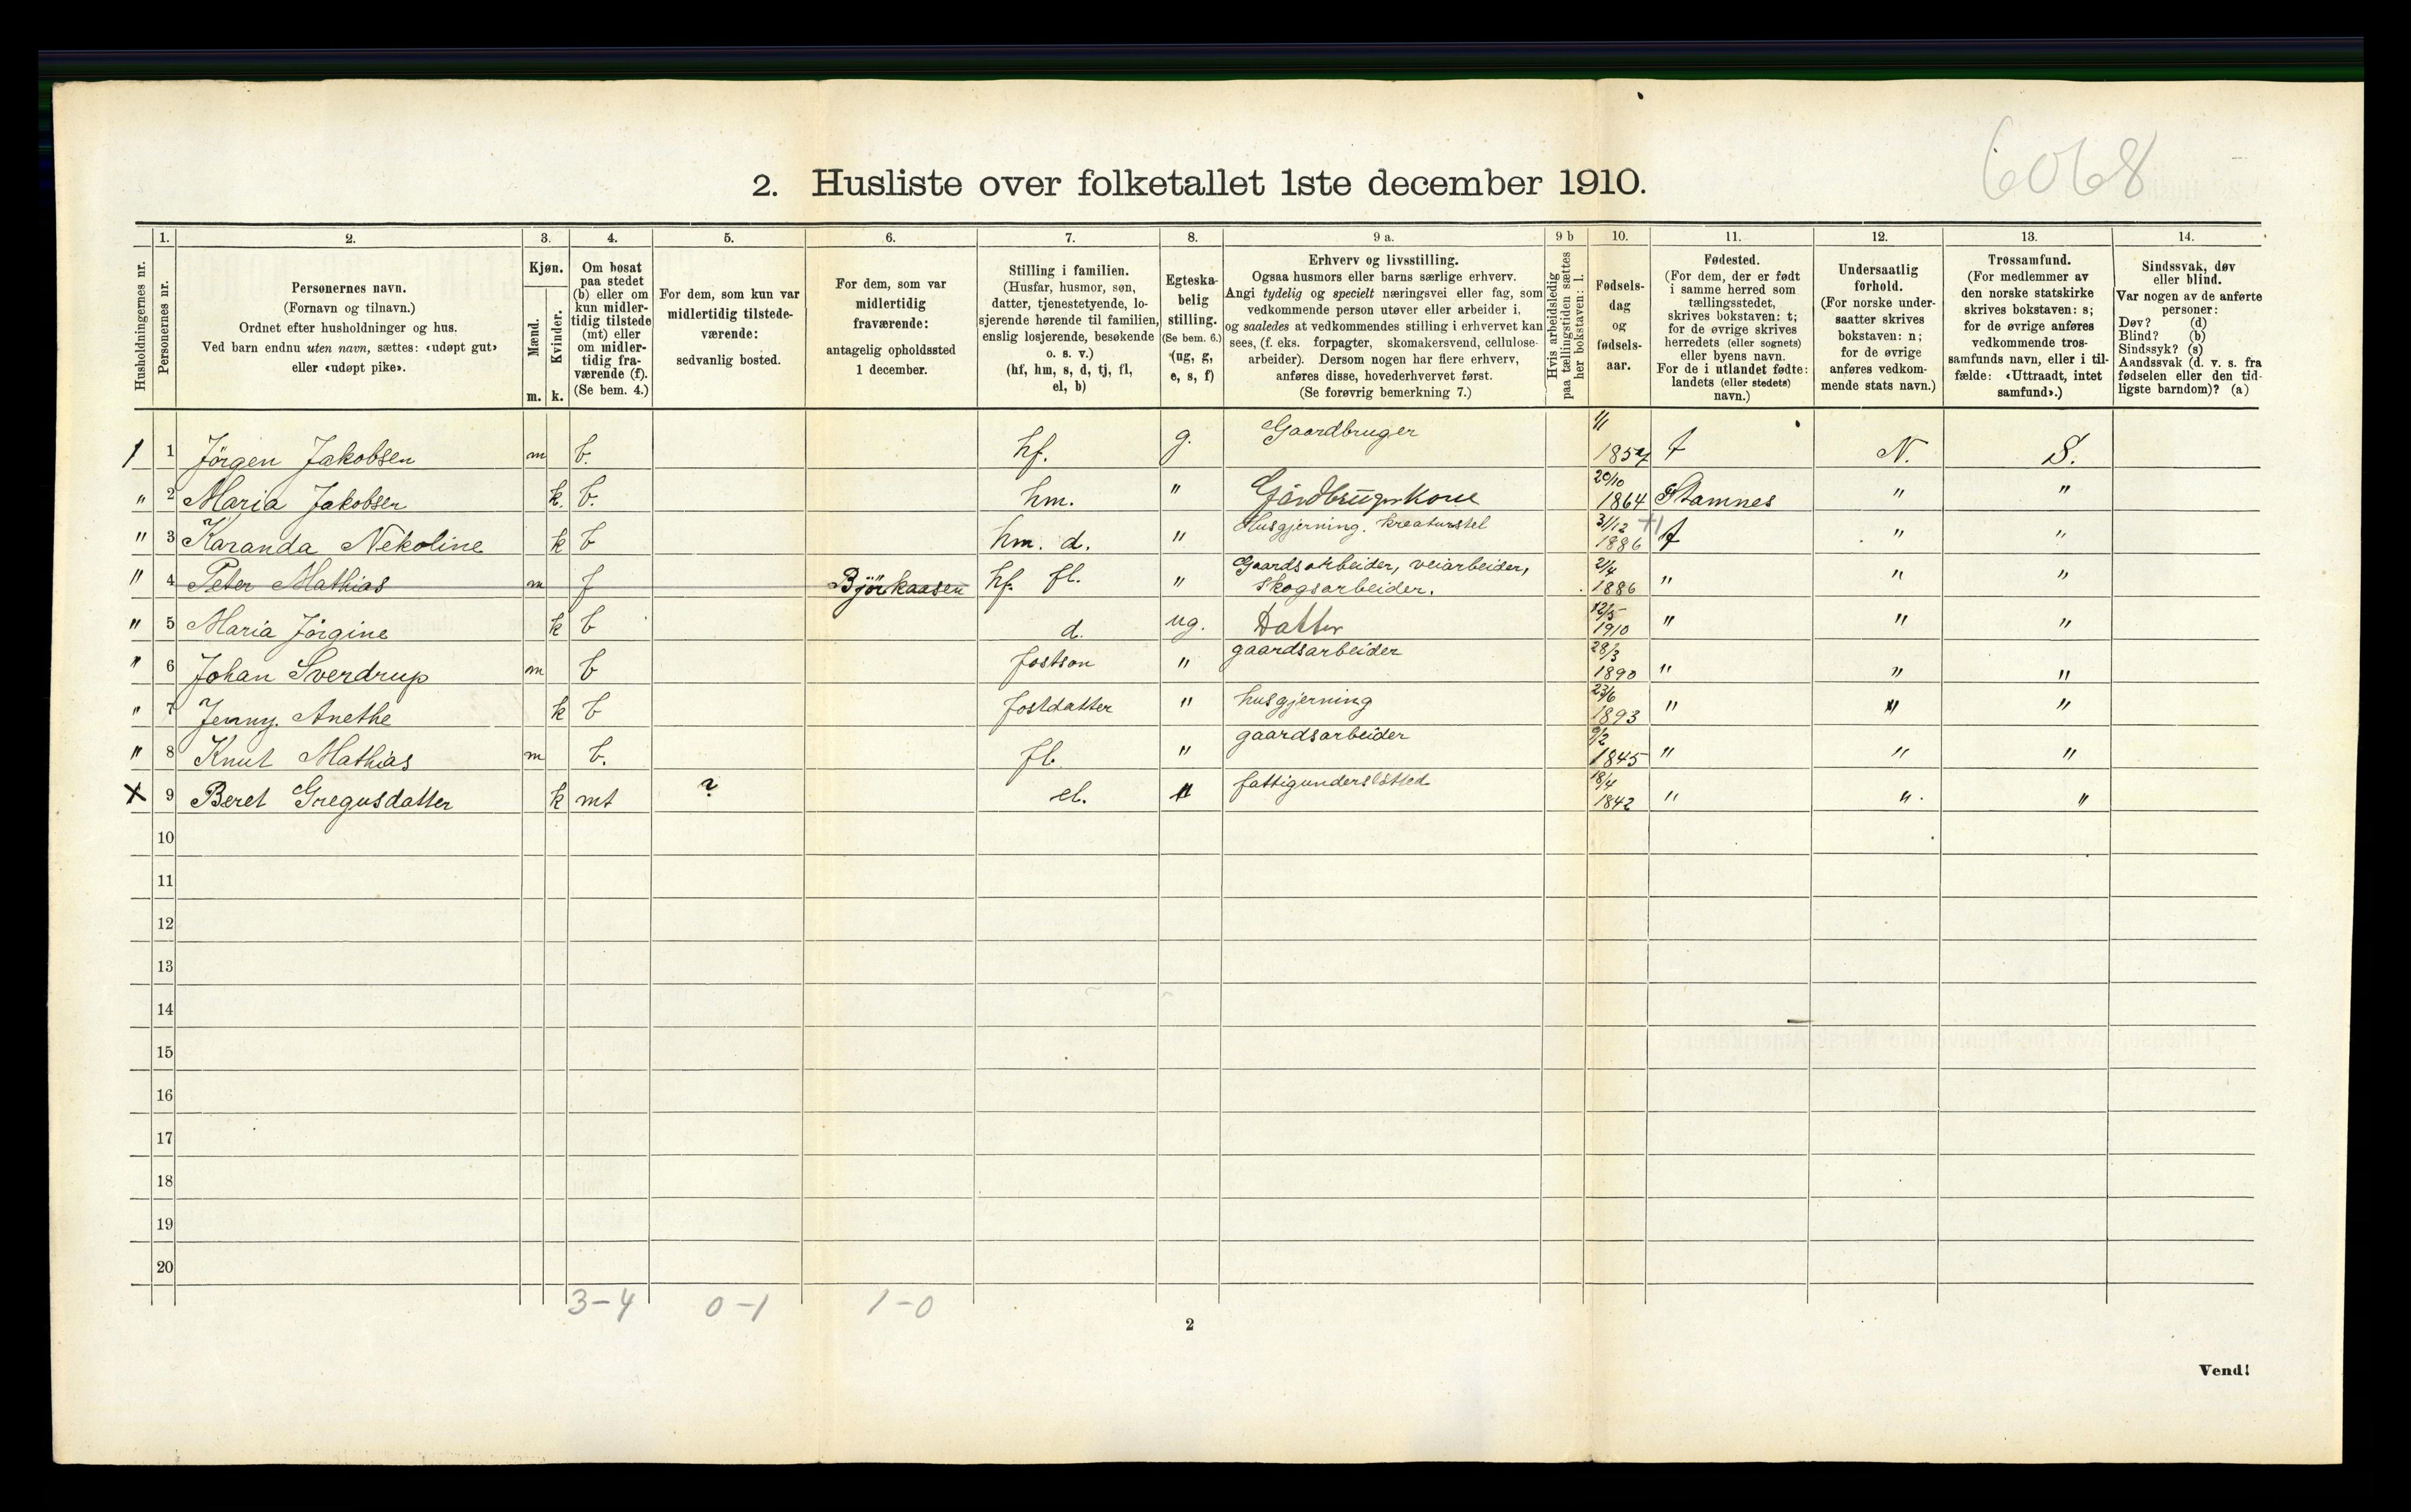 6068
2. Husliste over folketallet 1ste december 1910.
1. 2. 3. 4. 5. 6. 7. 8. 9 a. 9 b 10. 11. 12. 13. 14.
Husholdningernes nr.
Personernes nr.
Personernes navn.
(Fornavn og tilnavn.)
Ordnet efter husholdninger og hus.
Ved barn endnu uten navn, sættes: «udøpt gut»
eller «udøpt pike».
Kjøn.
Mænd.
Kvinder.
m. k.
Om bosat
paa stedet
(b) eller om
kun midler-
tidig tilstede
(mt) eller
om midler-
tidig fra-
værende (f).
(Se bem. 4.)
For dem, som kun var
midlertidig tilstede-
værende:
sedvanlig bosted.
For dem, som var
midlertidig
fraværende:
antagelig opholdssted
1 december.
Stilling i familien.
(Husfar, husmor, søn,
datter, tjenestetyende, lo-
sjerende hørende til familien,
enslig losjerende, besøkende
o. s. v.)
(hf, hm, s, d, tj, fl,
el, b)
Egteska-
belig
stilling.
(Se bem. 6.)
(ug, g,
e, s, f)
Erhverv og livsstilling.
Ogsaa husmors eller barns særlige erhverv.
Angi tydelig og specielt næringsvei eller fag, som
vedkommende person utøver eller arbeider i,
og saaledes at vedkommendes stilling i erhvervet kan
sees, (f. eks. forpagter, skomakersvend, cellulose-
arbeider). Dersom nogen har flere erhverv,
anføres disse, hovederhvervet først.
(Se forøvrig bemerkning 7.)
Hvis arbeidsledig
paa tællingstiden sættes
her bokstaven: l.
Fødsels-
dag
og
fødsels-
aar.
Fødested.
(For dem, der er født
i samme herred som
tællingsstedet,
skrives bokstaven: t;
for de øvrige skrives
herredets (eller sognets)
eller byens navn.
For de i utlandet fødte:
landets (eller stedets)
navn.)
Undersaatlig
forhold.
(For norske under-
saatter skrives
bokstaven: n;
for de øvrige
anføres vedkom-
mende stats navn.)
Trossamfund.
(For medlemmer av
den norske statskirke
skrives bokstaven: s;
for de øvrige anføres
vedkommende tros-
samfunds navn, eller i til-
fælde: «Uttraadt, intet
samfund».)
Sindssvak, døv
eller blind.
Var nogen av de anførte
personer:
Døv? (d)
Blind? (b)
Sindssyk? (s)
Aandssvak (d. v. s. fra
fødselen eller den tid-
ligste barndom)? (a)
1 1 Jörgen Jakobsen m b. hf. g. Gaardbruger 1/1 1857 t N. S.
" 2 Maria Jakobsen k. b. hm. " Gårdbrugerkone 20/10 1864 Stamnes " "
" 3 Karanda Nekoline k b hm. d. " Husgjerning. kreaturstel 31/12 1886 t " "
" 4 Peter Mathias m f Björkaasen hf. fl. " Gaardsarbeider, veiarbeider, skogsarbeider. 2/4 1886 " " "
" 5 Maria Jörgine k b d. ug. Datter 12/5 1910 " " "
" 6 Johan Sverdrup m b fostson " gaardsarbeider 28/3 1890 " " "
" 7 Jenny Anethe k b fostdatter " husgjerning 23/6 1893 " " "
" 8 Knut Mathias m b. fl. " gaardsarbeider 9/2 1845 " " "
X 9 Beret Gregusdatter k mt ? el. " fattigunderstötted 18/4 1842 " " "
10
11
12
13
14
15
16
17
18
19
20
3-4 0-1 1-0
2
Vend!